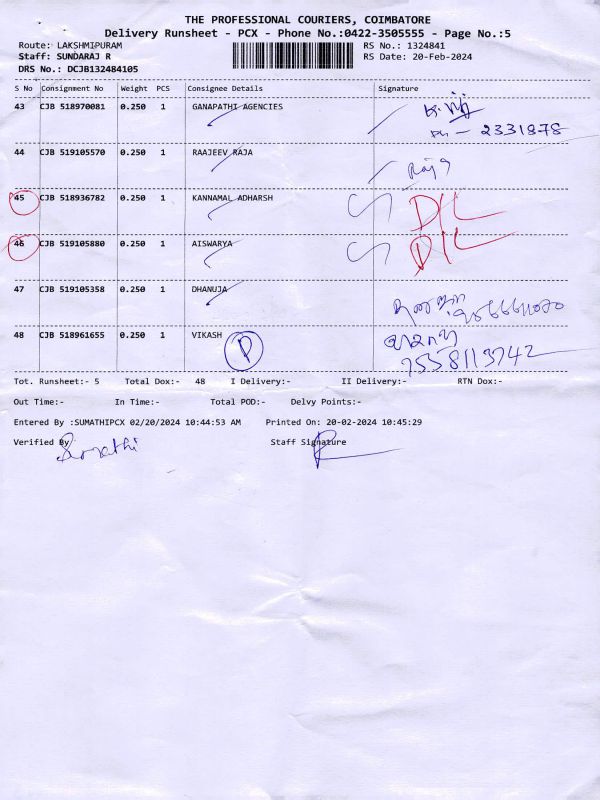 THE PROFESSIONAL COURIERS, COIMBATORE
Delivery Runsheet - PCX - Phone No.:0422-3505555 - Page No.:5
Route: LAKSHMIPURAM RS No.: 1324841
Staff: SUNDARAJ R RS Date: 20-Feb-2024
DRS No.: DCJB132484105
S No Consignment No Weight PCS Consignee Details Signature
43 CJB 518970081 0.250 1 GANAPATHI AGENCIES
Ph - 2331878
44 CJB 519105570 0.250 1 RAAJEEV RAJA
Raj
45 CJB 518936782 0.250 1 KANNAMAL ADHARSH D/L
46 CJB 519105880 0.250 1 AISWARYA D/L
47 CJB 519105358 0.250 1 DHANUJA
48 CJB 518961655 0.250 1 VIKASH P
7558113742
Tot. Runsheet:- 5 Total Dox:- 48 I Delivery:- II Delivery:- RTN Dox:-
Out Time:- In Time:- Total POD:- Delvy Points:-
Entered By :SUMATHIPCX 02/20/2024 10:44:53 AM Printed On: 20-02-2024 10:45:29
Verified By Sumathi Staff Signature